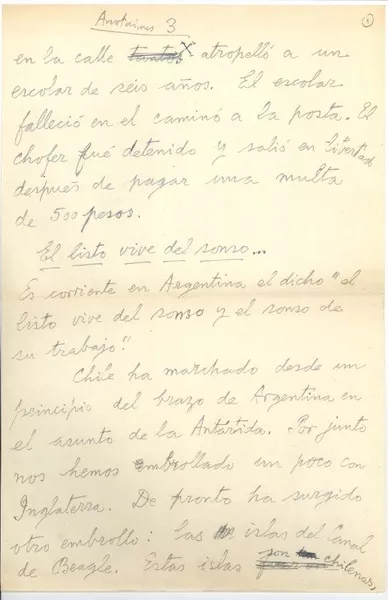 Anotaciones 3
1
en la calle tantos X atropelló a un
escolar de seis años. El escolar
falleció en el caminó a la posta. El
chofer fué detenido y salió en livertad
después de pagar una multa
de 500 pesos.
El listo vive del sonso...
Es corriente en Argentina el dicho "el
listo vive del sonso y el sonso de
su trabajo."
Chile ha marchado desde un
principio del brazo de Argentina en
el asunto de la Antártida. Por junto
nos hemos embrollado un poco con
Inglaterra. De pronto ha surgido
otro embrollo: las islas del Canal
de Beagle. Estas islas son chilenas,